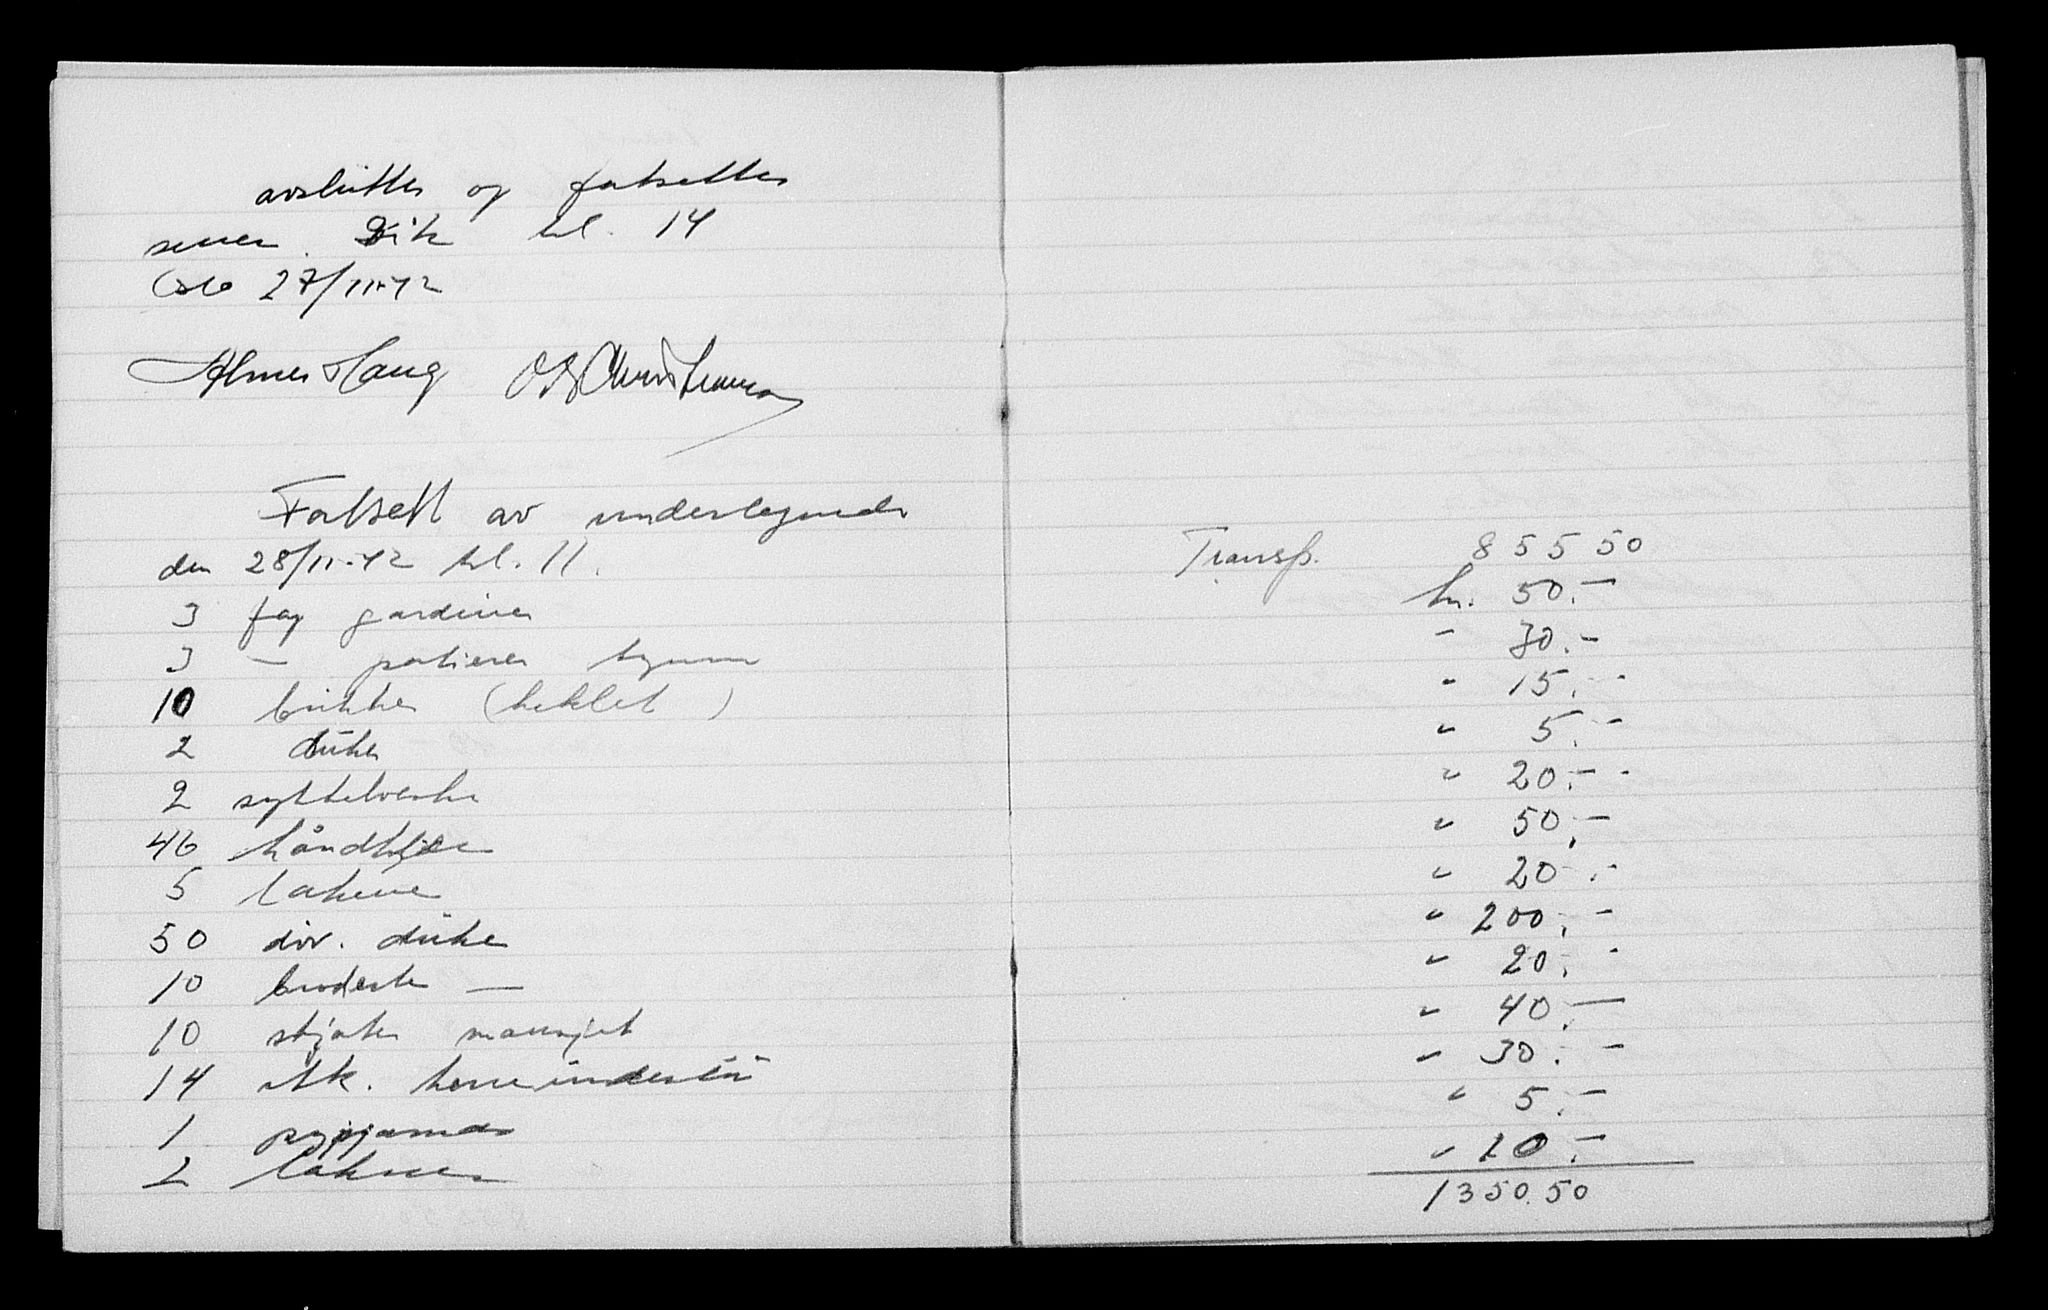 avsluttes og fortsettes
senere. Dik kl. 14
Oslo 27/11-42
Almer Haug O. B. Christiansen
Fortsett av undertegnede
den 28/11-42 kl. 11.
3 fag gardiner
3 — portierer
10 brikker (heklet)
2 duker
2 syttelvesker
46 håndklær
5 lakener
50 div. duke
10 broderte —
10 skjorter mansjet
14 stk. herreundertøi
1 pyjamas
2 laken
Transp. 855 50
kr. 50.-
- 30.-
" 15.-
" 5.-
" 20.-
" 50.-
" 20.-
" 200.-
" 20.-
" 40.-
" 30.-
" 5.-
" 10.-
1350.50